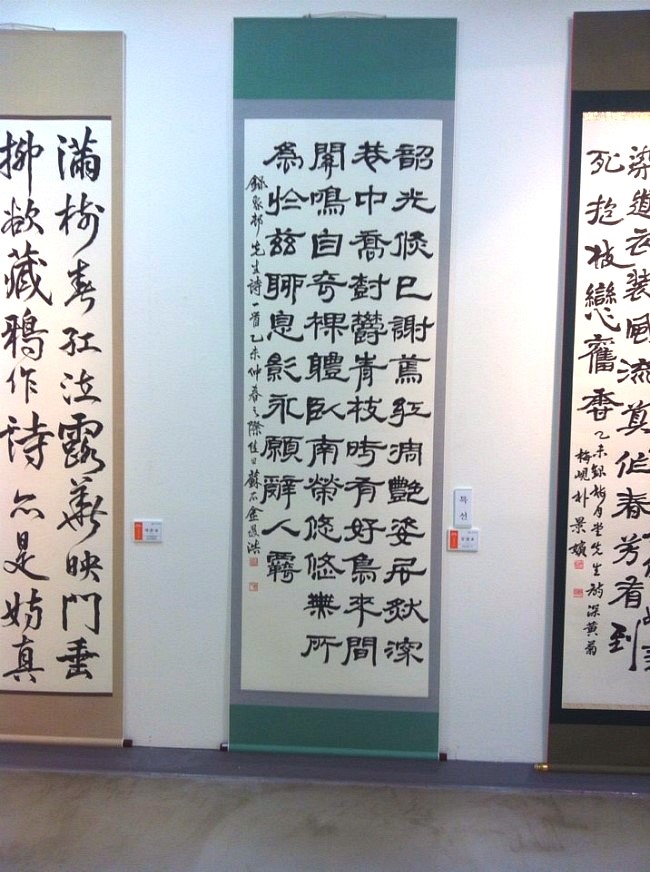 染道衣裝風流眞作春芳看到
死抱枝戀舊香
乙未錄梅月堂先生詩深黃菊
梅峴朴景嬪
韶光倏已謝蔫紅凋艷姿居然深
巷中喬樹鬱靑枝時有好鳥來間
關鳴自奇裸體臥南榮悠悠無所
爲於玆聊息影永願辭人羈
錄象邨先生詩一首乙未仲春之際佳日蘇石金洪
특선
滿樹春紅泣露華映門垂
柳欲藏鴉作詩亦是妨真